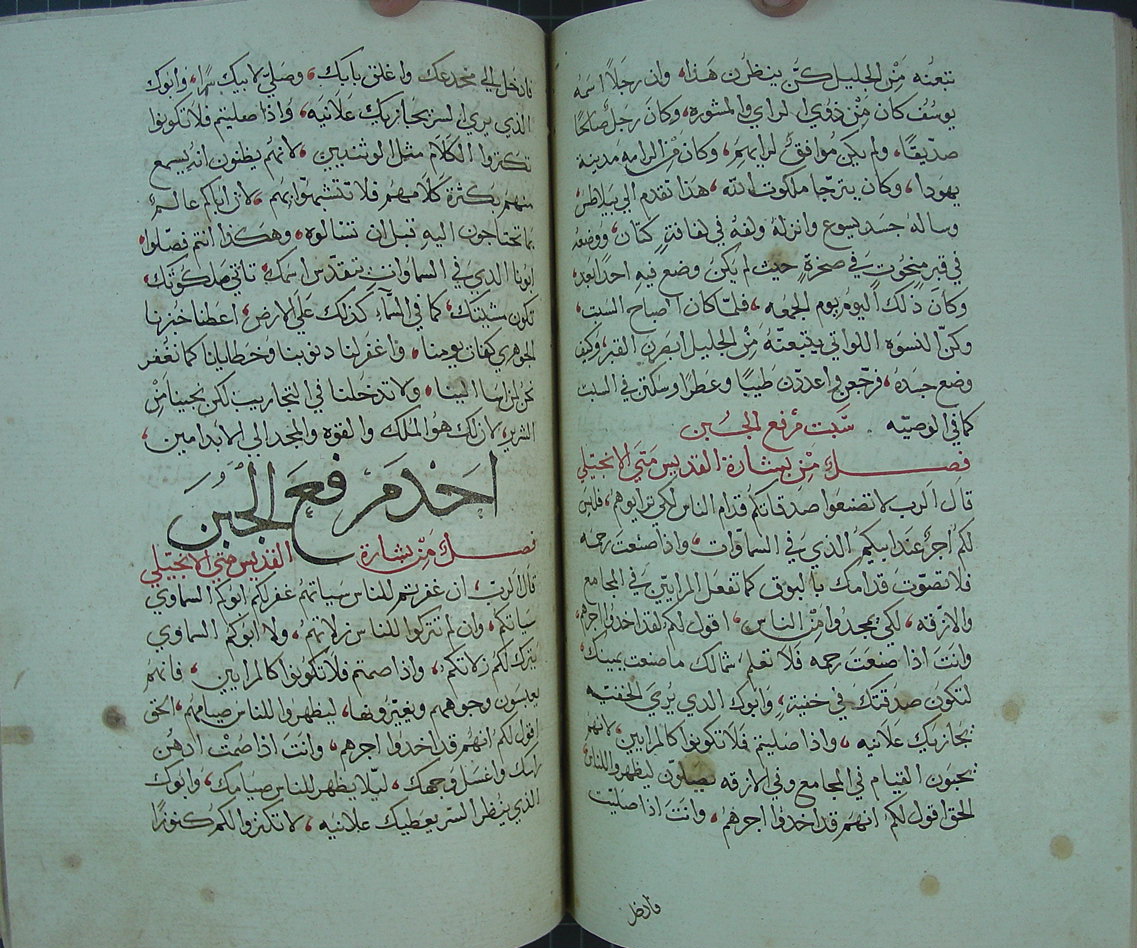 تبعنه مْن الجليل كنّ ينظرن هَذا، وان رجلاً اسمه
يوسُف كان مْن ذوي الراي والمشوره، وكانَ رجل صَالحًا
صدّيقًا، ولم يكن مُوافقًا لرايهم، وكان من الرامه مدينة
يهودا، وكان يترجّا ملكوت الله، هَذا تقدم الي بيلاطس،
وساله جسد يسوع وانزلهُ ولفهُ في لفافةٍ كتان، ووضعه
في قبرٍ منحُوت في صخرةٍ حيث لم يكن وضع فيه احداً بعد،
وكانَ ذلك اليوم يوم الجمعه، فلمّا كان اصباح السَبت،
وكنّ النسوه اللواتي يتبعنهُ مْن الجليل ابصرن القبر، وكيف
وضع جسَده، فرجَعن واعددن طيبًا وعطرًا وسكتن في السبت
كما في الوصيّه .
سَبت مرفع الجُبن
فصل مْن بشارة القديس متي الانجيلي
قال الرب لا تصنعَوا صدقاتكم قدام الناس لكي يرايوهُم، فليس
لكم اجرٌ عند ابيكم الذي في السماوات، واذا صنعتَ رحمه
فلا تصوّت قدامك بالبوق كما تفعل المرايّين في المجامع
والازقه، لكي يمجدوا مْن الناس، اقول لكم لقد اخدوا اجرهم،
وانتَ اذا صنعَتَ رحمه فلا تعلم شمالك ما صنعت يمينك،
لتكون صدقتك في خفيةٍ، وابوك الذي يري الخفيّه
يجازيك علانيه، واذا صليتم فلا تكونوا كالمرايين، لانهم
يحبون القيام في المجامع وفى الازقه يصلوّن ليظهروا للناس،
الحق اقول لكم انهم قد اخدوا اجرهم، وانتَ اذا صليّت
فادخل
فادخل الي مخدعك واغلق بابك، وصَليّ لابيك سرًا، وابوك
الذي يري السر يجازيك علانيَه، واذا صليتم فلا تكونوا
تكتروا الكلام مثل الوثنيين، لانهم يظنون انه يسمع
منهم بكثرة كلامهم فلا تتشبهّوا بهم، لان اباكم عالم
بما تحتاجون اليهِ قبل ان تسَالوه، وهكذا انتم فصَلّوا،
ابونا الدي في السماوات يتقدّس اسمك، تاتي ملكوتك،
تكون مشيتك، كما في السَّماء كذلك علي الارض، اعطنا خبزنا
الجوهري كفاف يومنا، واغفر لنا دنوبنا وخطايانا كما نغفر
نحن لمن اسا الينا، ولا تدخلنا في التجاريب لكن نجينا من
الشرير، لان لك هو الملك والقوه والمجد الي الابد امين،
احَد مَرفع الجُبُن
فصل مْن بشارة القديس متي الانجيلي
قال الرب، ان غفرتم للناس سَياتهم غفر لكم ابوكم السماوي
سَياتكم، وان لم تتركوا للناس زلاتهم، ولا ابوكم السماوي
يترك لكم زلاتكم، واذا صمتم فلا تكونوا كالمرايين، فانهم
يعبسون وجوههم ويغيّرونها، ليظهروا للناس صيامهم، الحق
اقول لكم انهم قد اخدوا اجرهم، وانتَ اذا صُمْت ادهن
راسك واغسَل وجهك، ليلا يظهر للناس صيامك، وابوك
الذي ينظر السر يعطيك علانيه، لا تكنزوا لكم كنوزًا